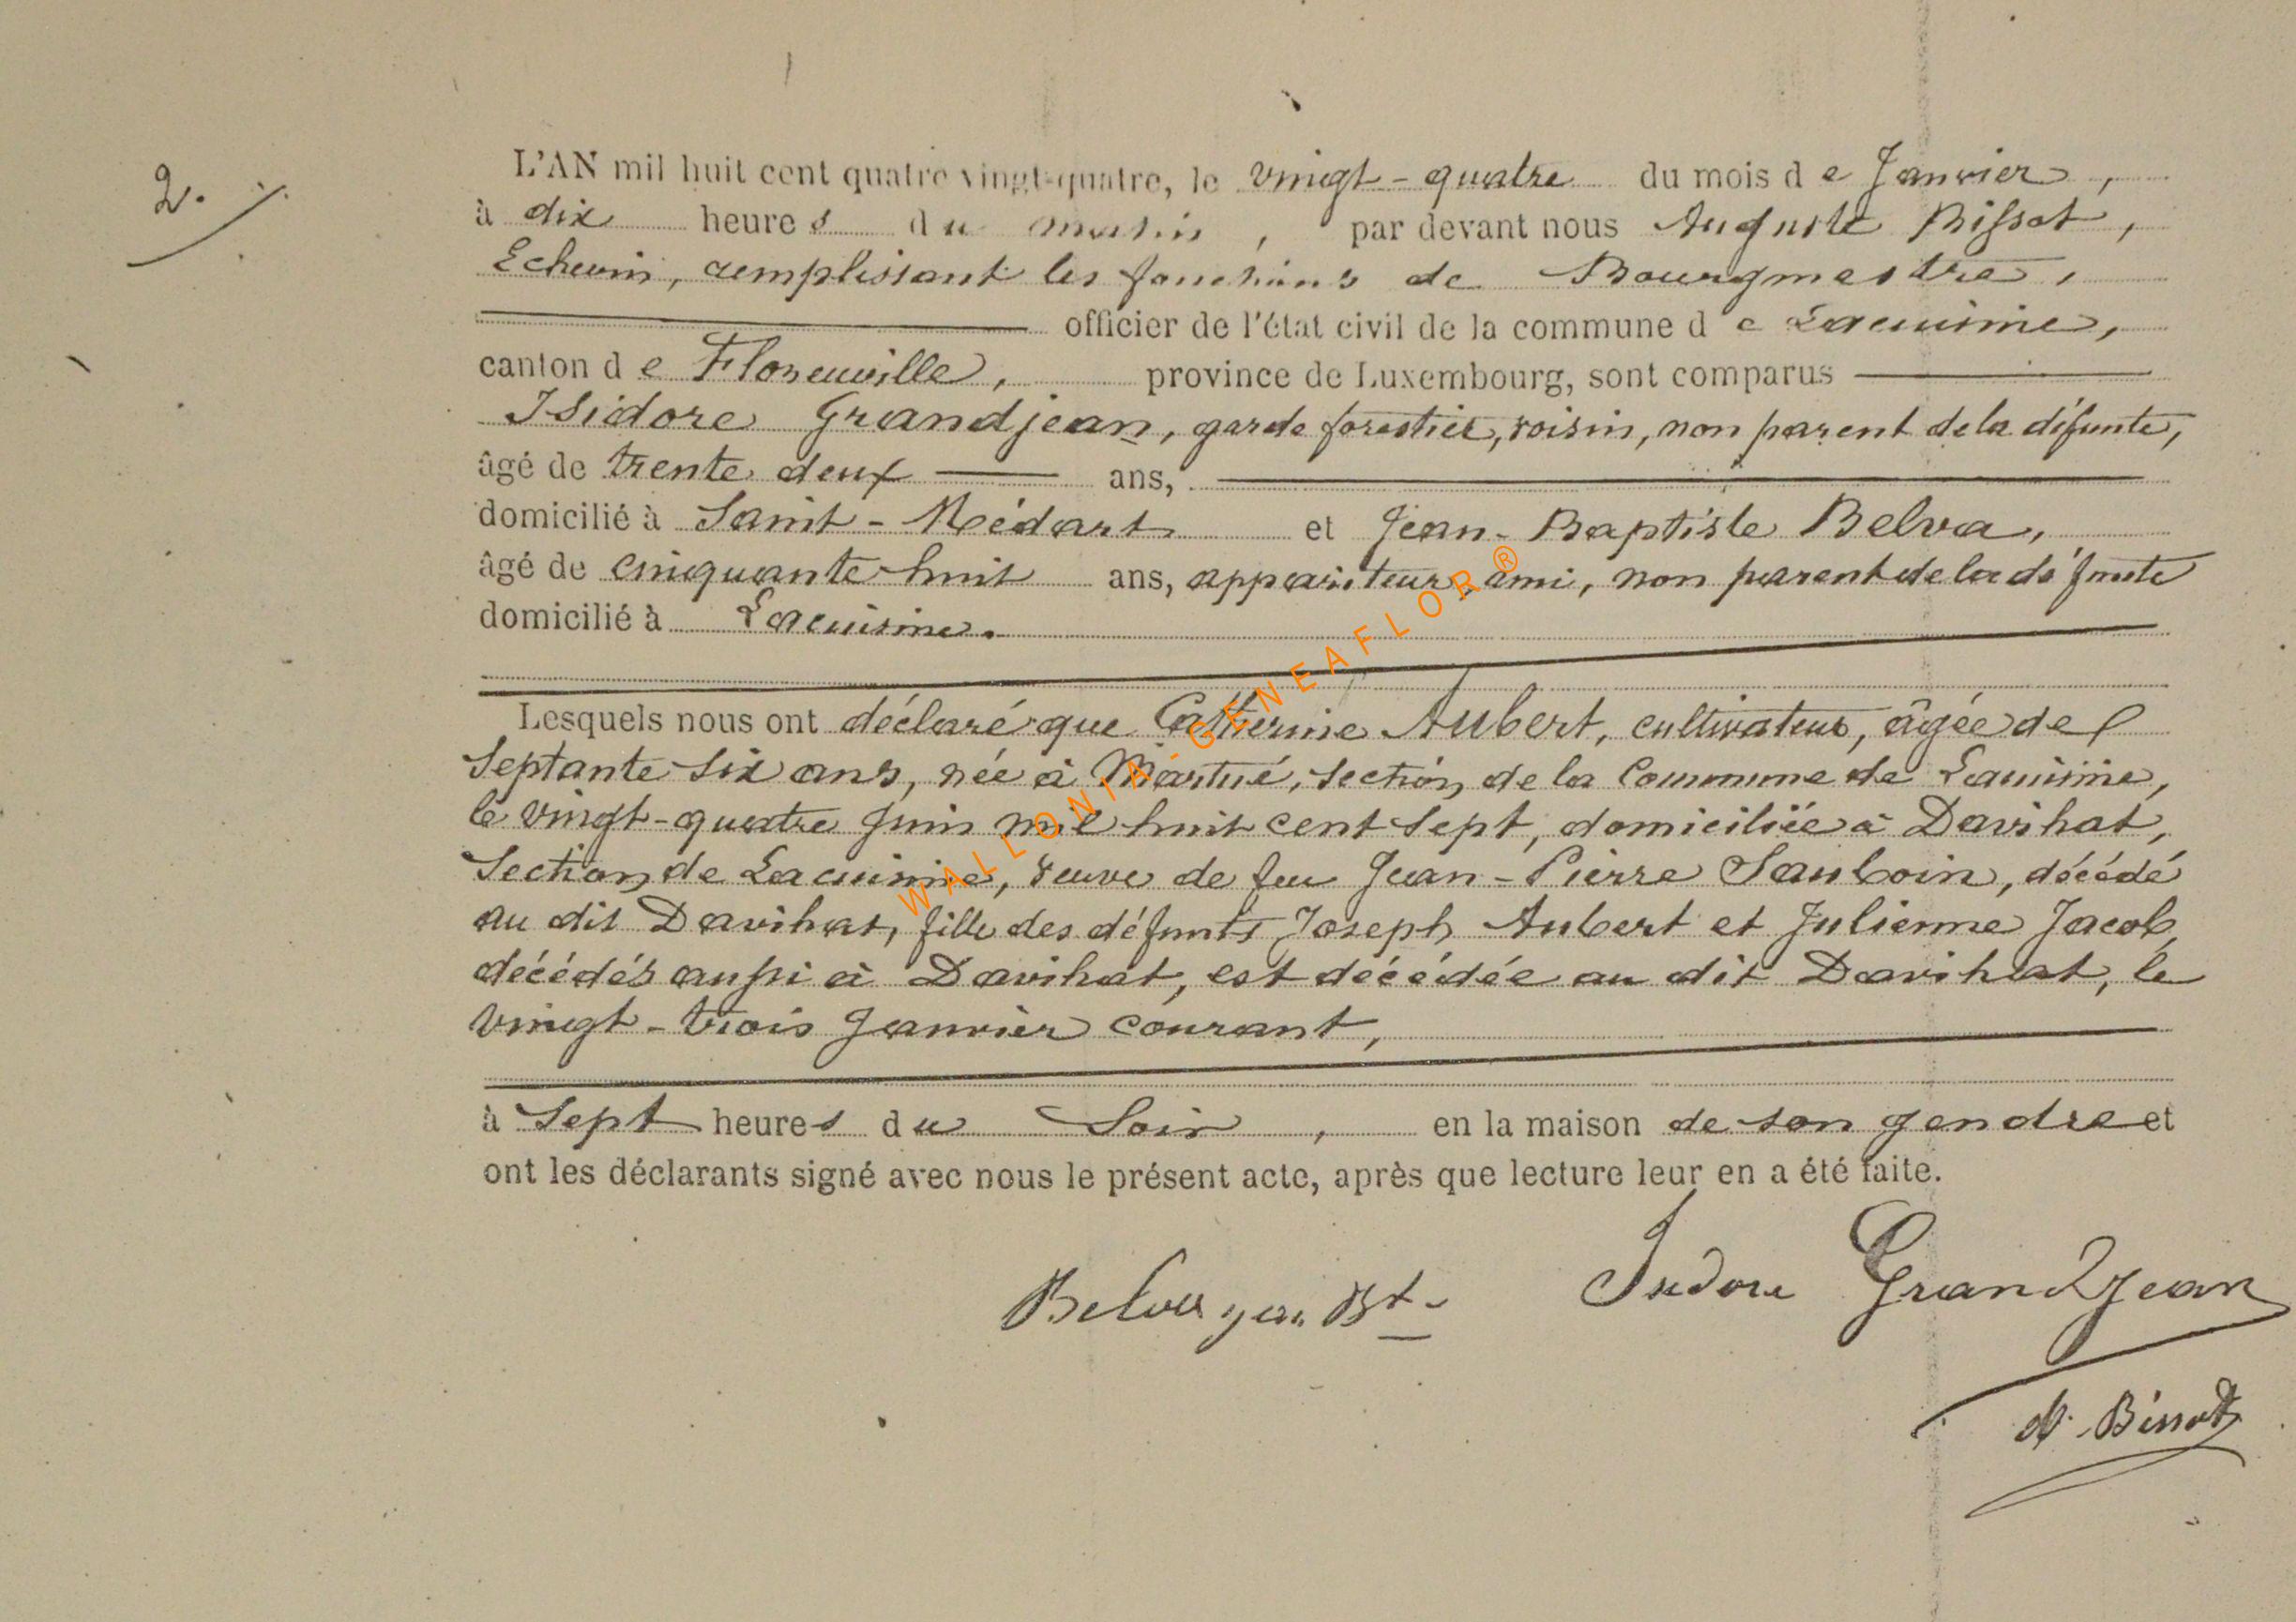 2.
L'AN mil huit cent quatre vingt-quatre, le vingt-quatre du mois de Janvier,
à dix heures du matin, par devant nous Auguste Bissot,
Echevin, remplissant les fonctions de Bourgmestre,
officier de l'état civil de la commune de Lacuisine,
canton de Florenville, province de Luxembourg, sont comparus
Isidore Grandjean, garde forestier, voisin, non parent de la défunte,
âgé de trente deux ans,
domicilié à Saint-Médart et Jean-Baptiste Belva,
âgé de cinquante huit ans, appariteur, ami, non parent de la défunte
domicilié à Lacuisine.
Lesquels nous ont déclaré que Catherine Aubert, cultivateur, âgée de
septante six ans, née à Martué, section de la Commune de Lacuisine,
le vingt-quatre juin mil huit cent sept, domiciliée à Davihat,
section de Lacuisine, veuve de feu Jean-Pierre Sauboin, décédé
au dit Davihat, fille des défunts Joseph Aubert et Julienne Jacob,
décédés aussi à Davihat, est décédée au dit Davihat, le
vingt-trois Janvier courant,
à Sept heures du Soir, en la maison de son gendre et
ont les déclarants signé avec nous le présent acte, après que lecture leur en a été faite.
Belva jean Bt Isidore Grandjean
A. Bissot
WALLONIA-GENEAFLOR®